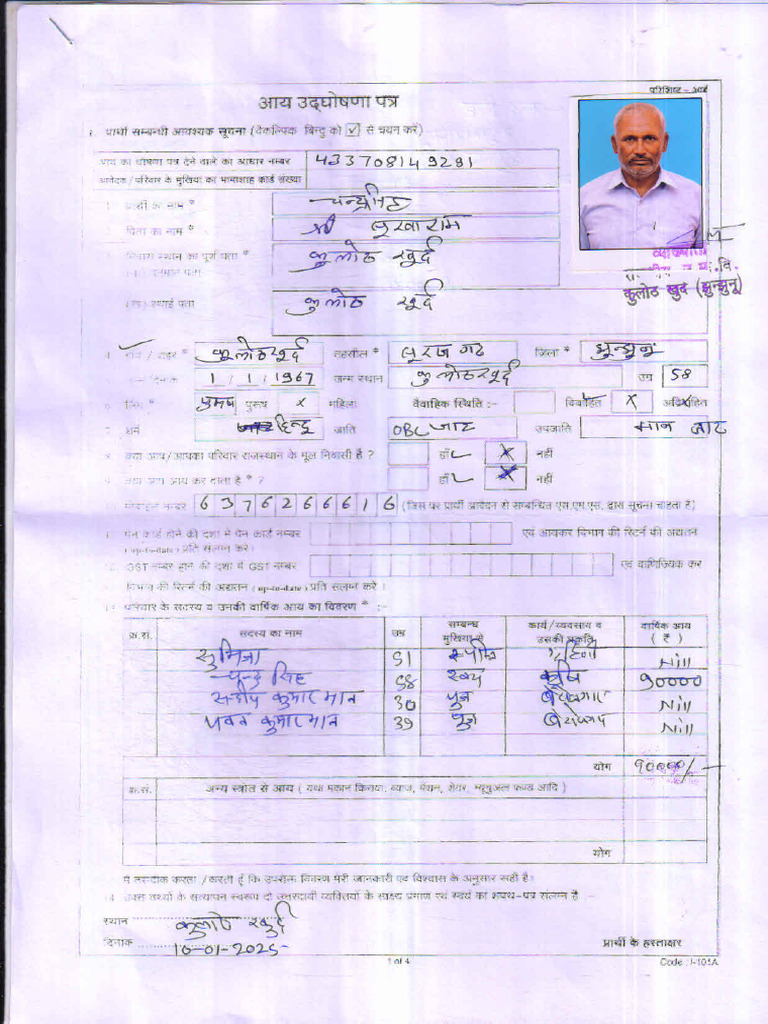 परिशिष्ट – आई
आय उद्घोषणा पत्र
1. प्रार्थी सम्बन्धी आवश्यक सूचना (वैकल्पिक बिन्दु को ✓ से चयन करें)
आय का घोषणा पत्र देने वाले का आधार नम्बर 433708149291
आवेदक / परिवार के मुखिया का भामाशाह कार्ड संख्या
1. प्रार्थी का नाम *
2. पिता का नाम * श्री लूखाराम
3. निवास स्थान का पूर्ण पता * कुलोठ खुर्द
वर्तमान पता
कुलोठ खुर्द (झुन्झुनू)
(ख) स्थाई पता कुलोठ खुर्द
4. गाँव / शहर * कुलोठ खुर्द तहसील * सूरजगढ जिला * झुन्झुनू
1/1/1967 जन्म स्थान कुलोठ खुर्द उम्र 58
6. लिंग * पुरुष पुरूष x महिला वैवाहिक स्थिति :- विवाहित X अविवाहित
7. धर्म हिन्दू जाति OBC जाट उपजाति मान जाट
8. क्या आप/आपका परिवार राजस्थान के मूल निवासी है ? हाँ X नहीं
9. क्या आप आय कर दाता है * ? हाँ X नहीं
10. मोबाईल नम्बर 6376266616 (जिस पर प्रार्थी आवेदन से सम्बन्धित एस.एम.एस. द्वारा सूचना चाहता है)
11. पेन कार्ड होने की दशा में पेन कार्ड नम्बर एवं आयकर विभाग की रिटर्न की अद्यतन
(up-to-date) प्रति संलग्न करे।
GST नम्बर होने की दशा में GST नम्बर एवं वाणिज्यिक कर
विभाग की रिटर्न की अद्यतन (up-to-date) प्रति संलग्न करे।
परिवार के सदस्य व उनकी वार्षिक आय का विवरण * :-
क्र.सं. सदस्य का नाम उम्र सम्बन्ध मुखिया से कार्य/व्यवसाय व उसकी प्रकृति वार्षिक आय (₹)
51 Nill
58 स्वयं 90000
कुमार मान 30 पुत्र बेरोजगार Nill
पवन कुमार मान 39 पुत्र Nill
योग 90000/-
क्र.सं. अन्य स्त्रोत से आय ( यथा मकान किराया, ब्याज, पेंशन, शेयर, म्यूचुअल फण्ड आदि )
योग
मैं तस्दीक करता /करती हूँ कि उपरोक्त विवरण मेरी जानकारी एवं विश्वास के अनुसार सही है।
14. उक्त तथ्यों के सत्यापन स्वरूप दो उत्तरदायी व्यक्तियों के साक्ष्य प्रमाण एवं स्वयं का शपथ-पत्र संलग्न है –
स्थान कुलोठ खुर्द
दिनांक 10-01-2025 प्रार्थी के हस्ताक्षर
1 of 4 Code : I-101A